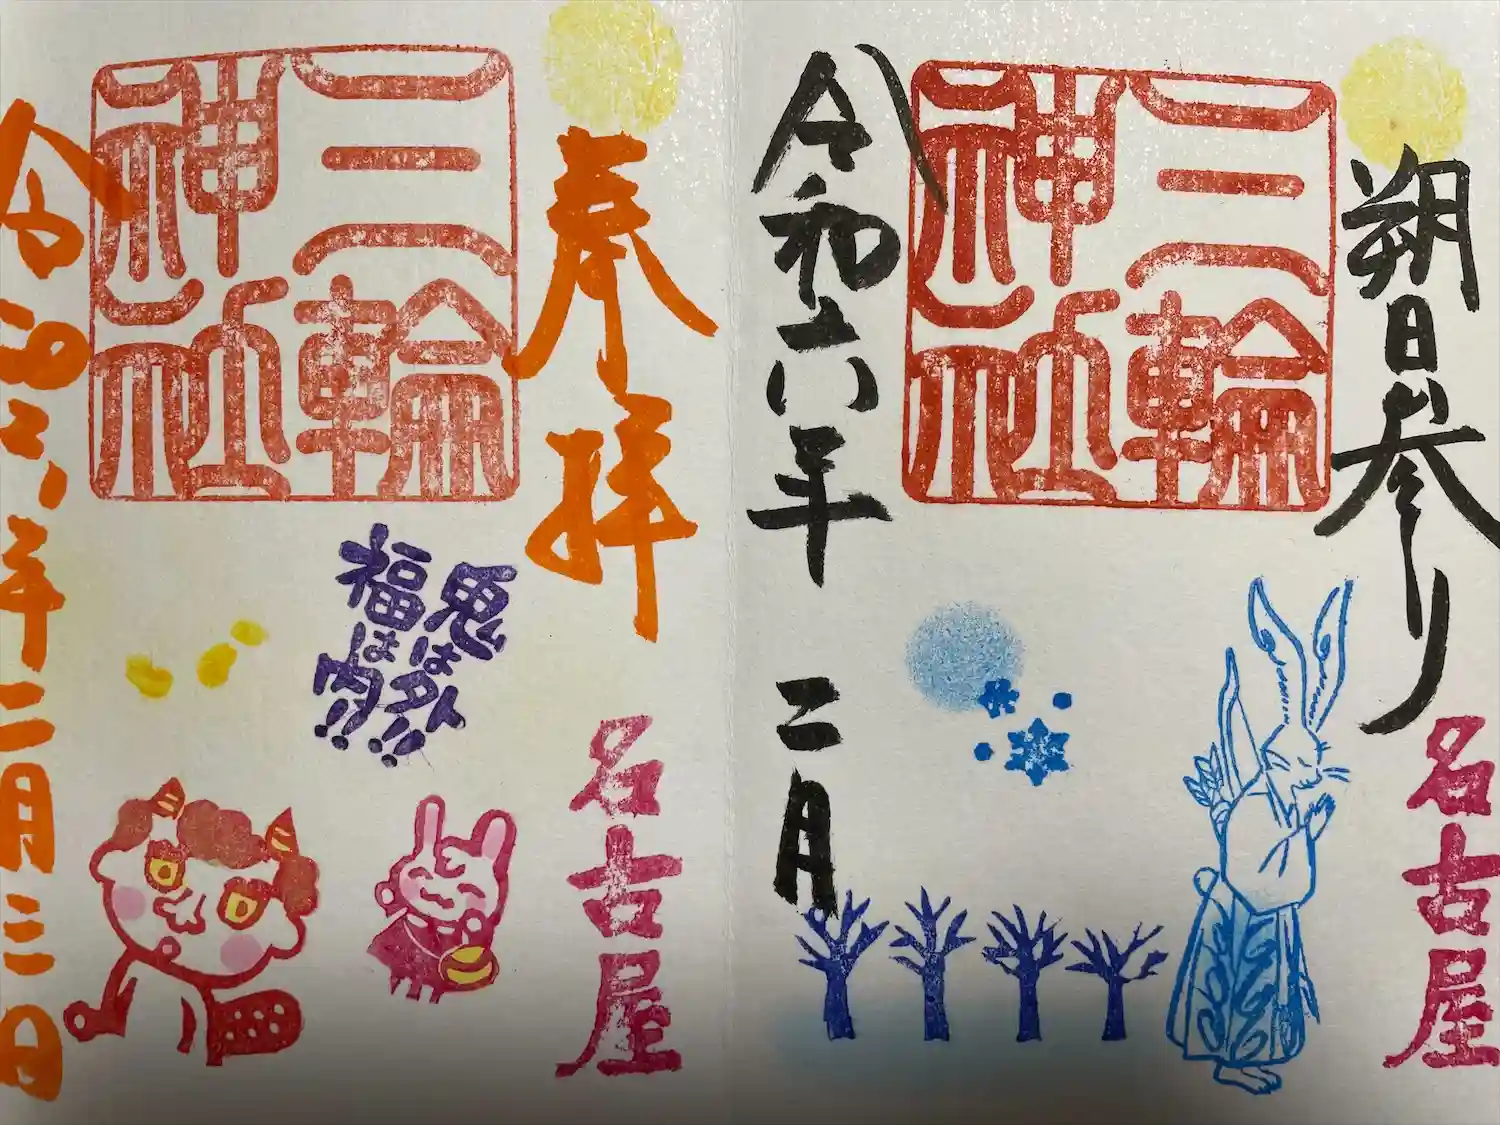 朔日参り
三輪
神社
令和六年 二月
名古屋
奉拝
三輪
神社
鬼は外
福は内!!
令和六年二月三日
名古屋